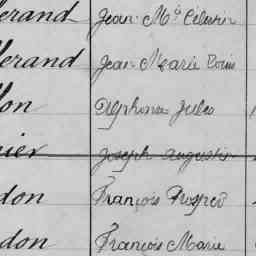 erand Jean Mie Célestin
lerand Jean Marie Louis
llon Alphonse Jules
nier Joseph Augustin
don François Prosper
don François Marie